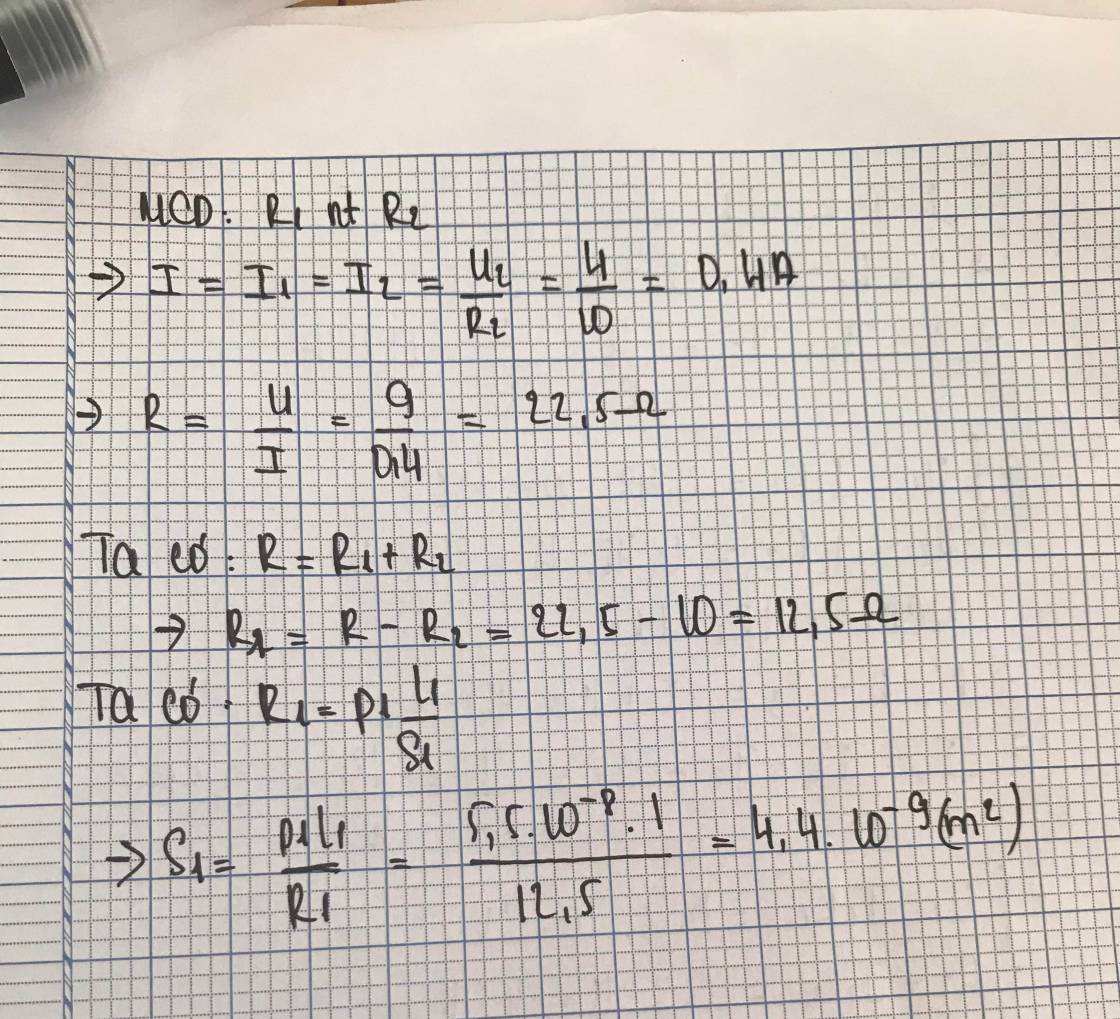 MCD: R1 nt R2
→ I = I1 = I2 = U2/R2 = 4/10 = 0,4A
→ R = U/I = 9/0,4 = 22,5Ω
Ta có: R = R1 + R2
→ R1 = R - R2 = 22,5 - 10 = 12,5Ω
Ta có: R1 = ρ1 l1/S1
→ S1 = ρ1l1/R1 = 5,5.10⁻⁸.1/12,5 = 4,4.10⁻⁹(m²)